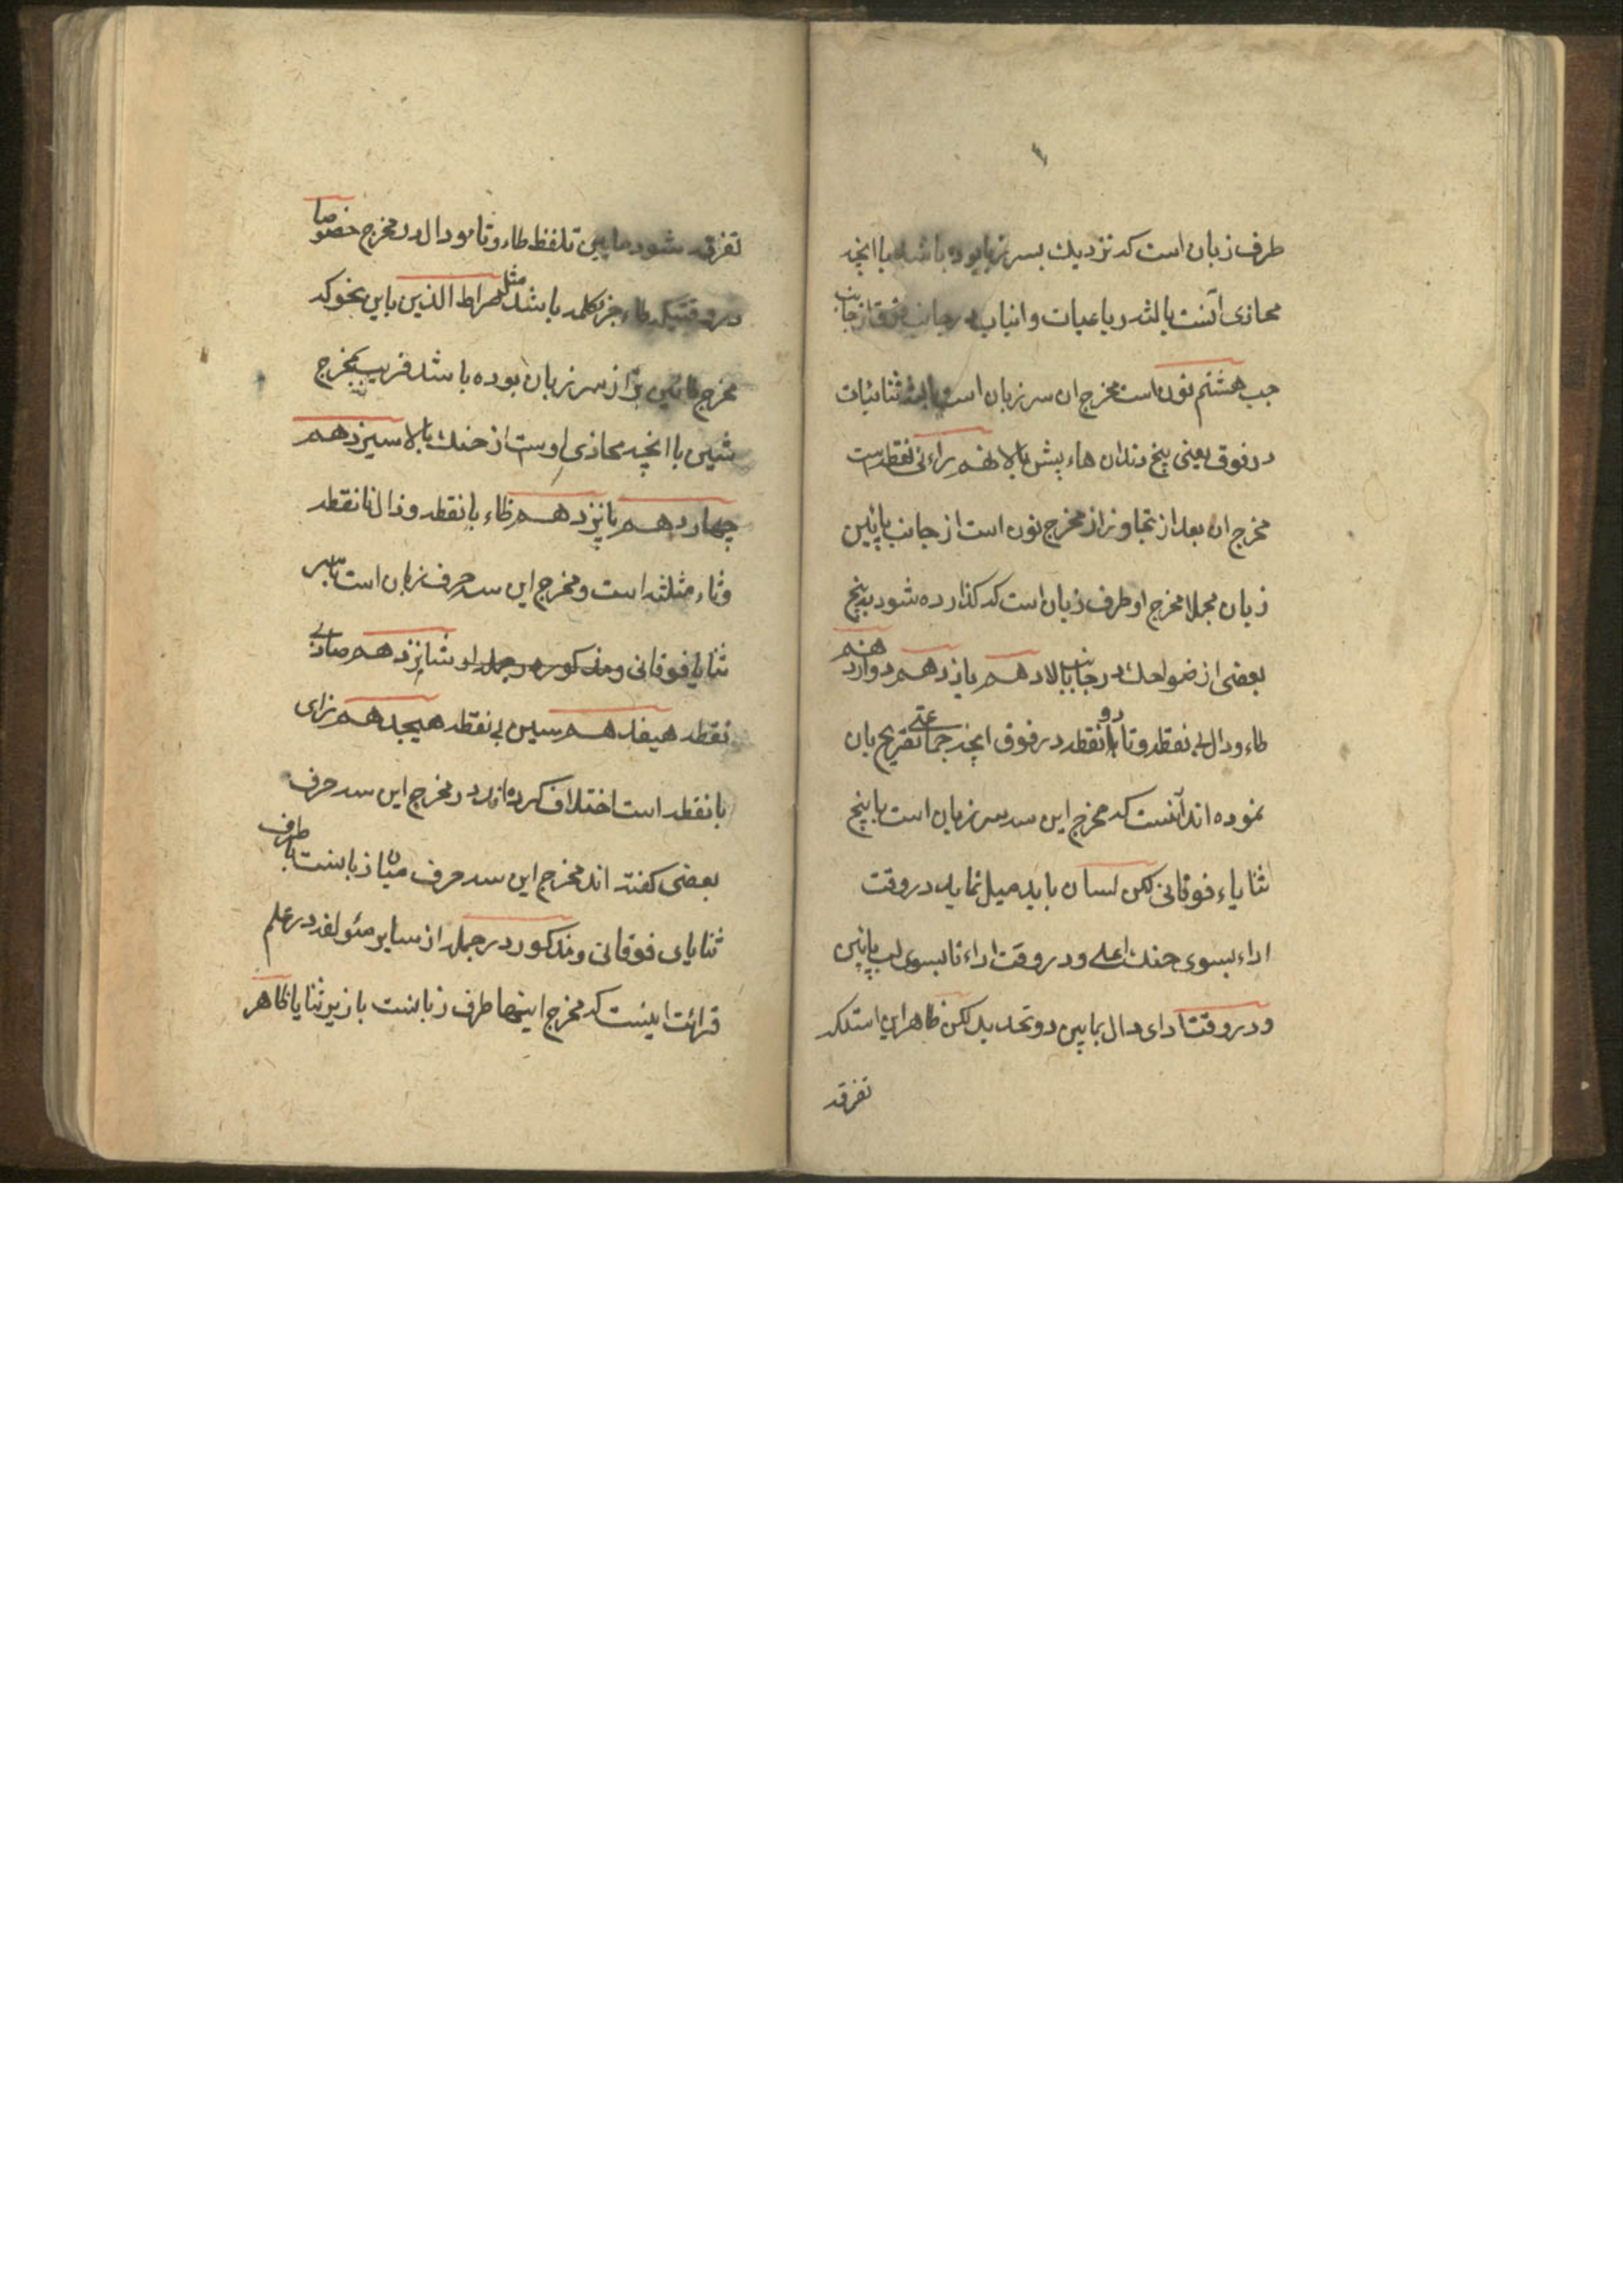 طرف زبان است که نزدیک بسر زبان بوده باشد با انچه
محاذی آنست بالثه رباعیات و انیاب در جانب فوق از جانب
جپ هشتم نون است مخرج ان سر زبان است بالثه ثنائیات
در فوق یعنی بیخ دندان هاء پیش بالا نهم راء بی نقطه است
مخرج ان بعد از تجاوز از مخرج نون است از جانب پائین
زبان مجملا مخرج او طرف زبان است که کذارده شود به بیخ
بعضی از ضواحک در جانب بالا دهم یازدهم دوازدهم
طاء و دال بی نقطه و تا با دو نقطه در فوق انچه جماعتی تصریح بان
نموده اند آنست که مخرج این سه سر زبان است با بیخ
ثنایاء فوقانی لکن لسان باید میل نماید در وقت
اداء بسوی حنک اعلی و در وقت اداء تا بسوی لب پائین
و در وقت ادای دال بمابین دو تحدید لکن ظاهر این استکه
تفرقه
تفرقه شود مابین تلفظ طاء و تا و دال در مخرج خصوصا
در وقتیکه طاء جزء کلمه باشد مثل صراط الذین باین نحو که
مخرج از سر زبان بوده باشد قریب بمخرج
شین با انچه محاذی اوست از حنک بالا سیزدهم
چهاردهم پانزدهم ظاء با نقطه و ذال با نقطه
و ثاء مثلثه است و مخرج این سه حرف زبان است با سر
ثنایا فوقانی و مذکور در جمله او شانزدهم صاد بی
نقطه هیفدهم سین بی نقطه هیجدهم زای
با نقطه است اختلاف کرده اند در مخرج این سه حرف
بعضی کفته اند مخرج این سه حرف میان زبانست با طرف
ثنایای فوقانی و مذکور در جمله از سایر مئولفه در علم
قرائت اینست که مخرج اینها طرف زبانست با زیر ثنایا ظاهر